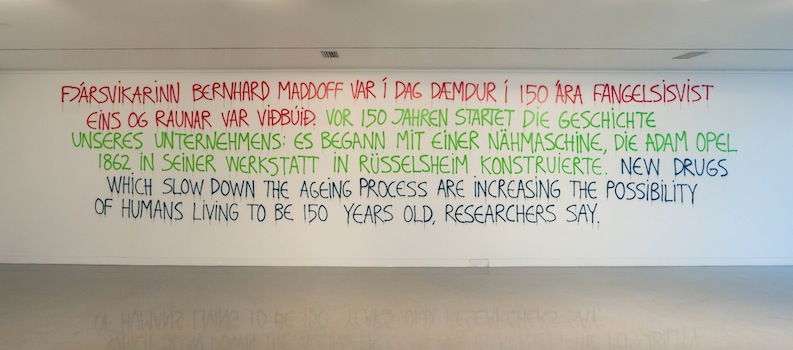 FJÁRSVIKARINN BERNHARD MADDOFF VAR Í DAG DÆMDUR Í 150 ÁRA FANGELSISVIST
EINS OG RAUNAR VAR VIÐBÚIÐ. VOR 150 JAHREN STARTET DIE GESCHICHTE
UNSERES UNTERNEHMENS: ES BEGANN MIT EINER NÄHMASCHINE, DIE ADAM OPEL
1862 IN SEINER WERKSTATT IN RÜSSELSHEIM KONSTRUIERTE. NEW DRUGS
WHICH SLOW DOWN THE AGEING PROCESS ARE INCREASING THE POSSIBILITY
OF HUMANS LIVING TO BE 150 YEARS OLD, RESEARCHERS SAY.